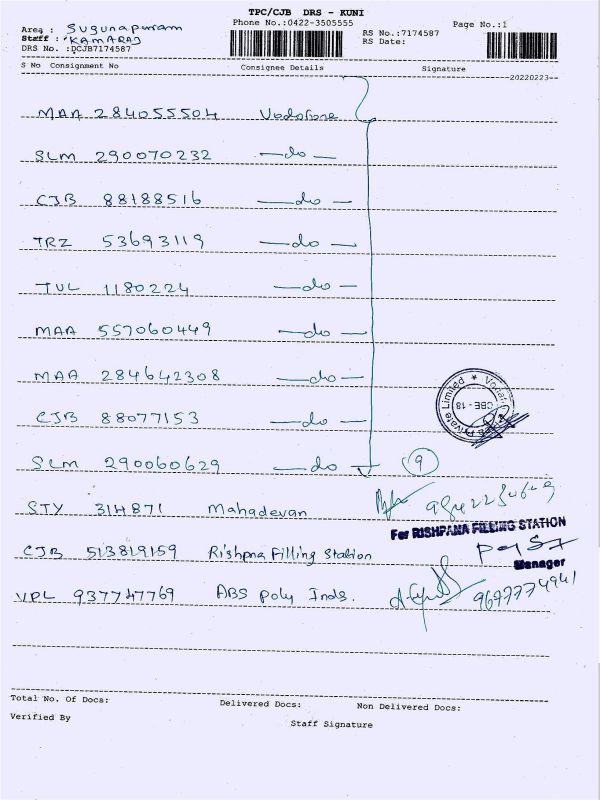 TPC/CJB DRS - KUNI
Phone No.:0422-3505555
Page No.:1
Area : Sugunapuram
Staff : KAMARAJ
DRS No. :DCJB7174587
RS No.:7174587
RS Date:
S No Consignment No Consignee Details Signature
20220223
MAA 284055504 Vodafone
SLM 290070232 —do—
CJB 88188516 —do—
TRZ 53693119 —do—
TUL 1180224 —do—
MAA 557060449 —do—
MAA 284642308 —do—
CJB 88077153 —do—
SLM 290060629 —do— 9
STY 314871 Mahadevan
CJB 513819159 Rishpna Filling Station
For RISHPANA FILLING STATION
Manager
VPL 937747769 ABS Poly Inds. 9677774941
Total No. Of Docs: Delivered Docs: Non Delivered Docs:
Verified By
Staff Signature